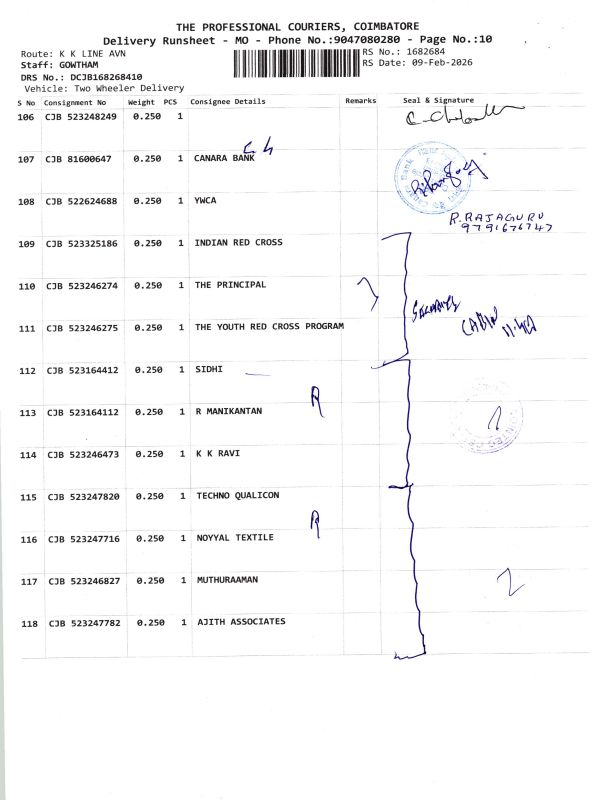 THE PROFESSIONAL COURIERS, COIMBATORE
Delivery Runsheet - MO - Phone No.:9047080280 - Page No.:10
Route: K K LINE AVN
RS No.: 1682684
Staff: GOWTHAM
RS Date: 09-Feb-2026
DRS No.: DCJB168268410
Vehicle: Two Wheeler Delivery
S No Consignment No Weight PCS Consignee Details Remarks Seal & Signature
106 CJB 523248249 0.250 1
107 CJB 81600647 0.250 1 CANARA BANK
108 CJB 522624688 0.250 1 YWCA
R. RAJAGURU
9791676747
109 CJB 523325186 0.250 1 INDIAN RED CROSS
110 CJB 523246274 0.250 1 THE PRINCIPAL
111 CJB 523246275 0.250 1 THE YOUTH RED CROSS PROGRAM
112 CJB 523164412 0.250 1 SIDHI
113 CJB 523164112 0.250 1 R MANIKANTAN
114 CJB 523246473 0.250 1 K K RAVI
115 CJB 523247820 0.250 1 TECHNO QUALICON
116 CJB 523247716 0.250 1 NOYYAL TEXTILE
117 CJB 523246827 0.250 1 MUTHURAAMAN
2
118 CJB 523247782 0.250 1 AJITH ASSOCIATES